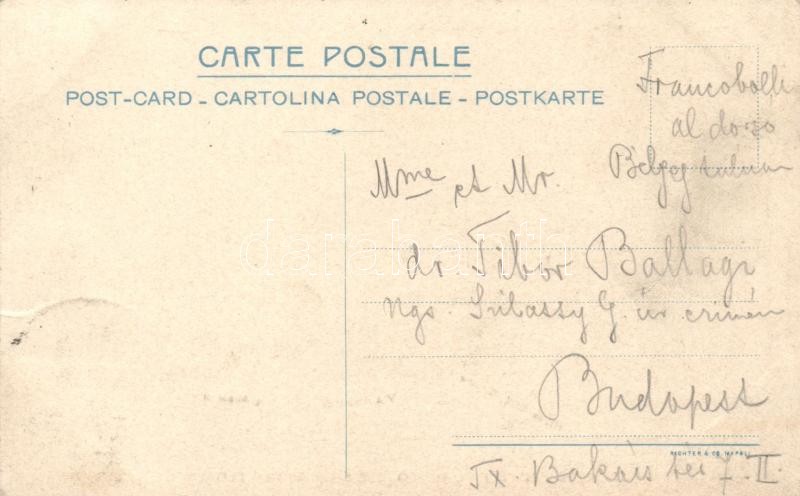 CARTE POSTALE
POST-CARD - CARTOLINA POSTALE - POSTKARTE
Francobolli
al dorso
Bélyeg túlnan
Mme et Mr.
dr Tibor Ballagi
Ngs. G. úr címén
Budapest
RICHTER & CO. NAPOLI
IX. Bakáts tér 7. II.
darabanth